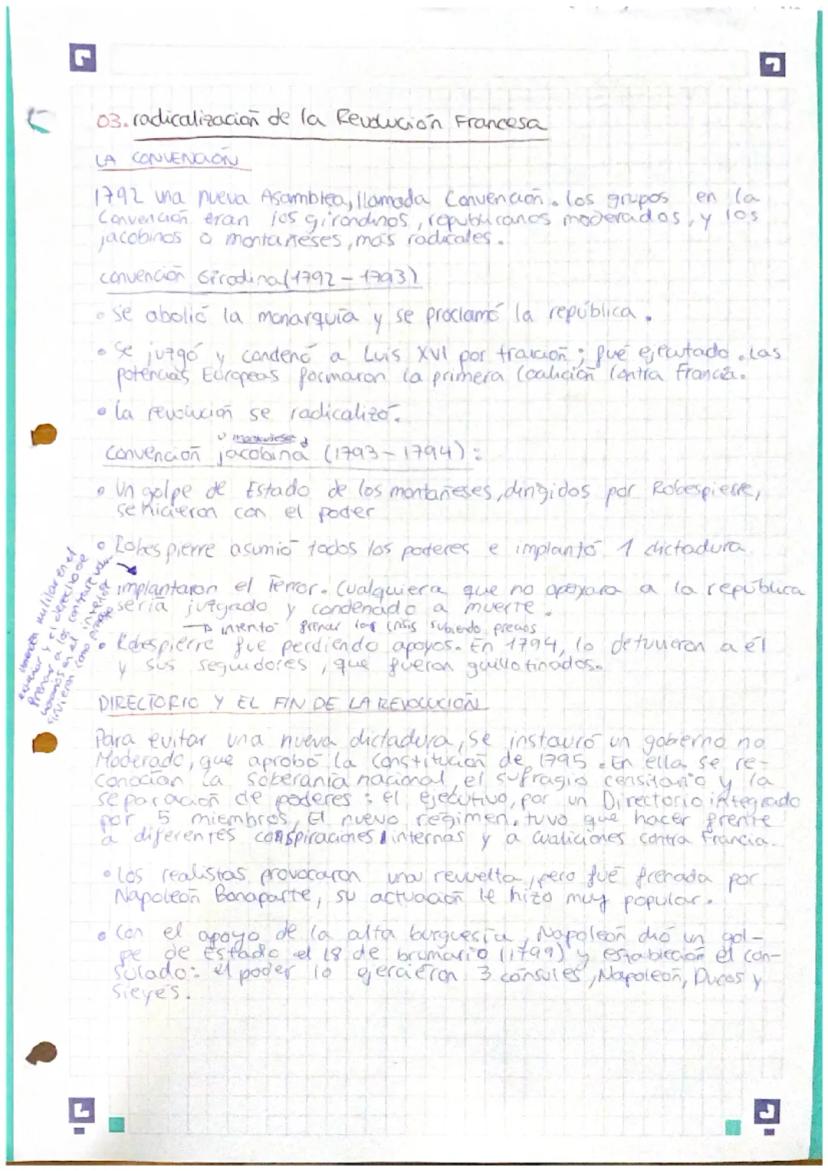 03. radicalización de la Revolución Francesa
LA CONVENCIÓN
1792 una nueva Asamblea, llamada Convención. los grupos en la
Convención eran los girondinos, republicanos moderados, y los
jacobinos o montañeses, más radicales.
convención Girodina (1792 - 1793)
• Se abolió la monarquía y se proclamó la república.
• Se juzgó y condenó a Luis XVI por traición; fue ejecutado. Las
potencias Europeas formaron la primera Coalición contra Francia.
• la revolución se radicalizó.
Convención jacobina (1793 - 1794):
• Un golpe de Estado de los montañeses, dirigidos por Robespierre,
se hicieron con el poder
• Robespierre asumió todos los poderes e implantó 1 dictadura
implantaron el Terror. Cualquiera que no apoyara a la república
sería juzgado y condenado a muerte.
→ intentó frenar las crisis subiendo precios
• Robespierre fue perdiendo apoyos. En 1794, lo detuvieron a él
y sus seguidores, que fueron guillotinados.
militar en el
y el derecho de
frenar a los
DIRECTORIO Y EL FIN DE LA REVOLUCIÓN
Para evitar una nueva dictadura, se instauró un gobierno no
Moderado, que aprobó la Constitución de 1795. En ella se re-
conocían la soberanía nacional el sufragio censitario y la
separación de poderes: el ejecutivo, por un Directorio integrado
por 5 miembros, El nuevo régimen, tuvo que hacer frente
a diferentes conspiraciones internas y a coaliciones contra Francia.
• los realistas provocaron una revuelta, pero fue frenada por
Napoleón Bonaparte, su actuación le hizo muy popular.
• Con el apoyo de la alta burguesía, Napoleón dió un gol-
pe de Estado el 18 de brumario (1799) y estableción el con-
sulado: el poder lo ejercieron 3 cónsules, Napoleón, Ducos y
Sieyes.